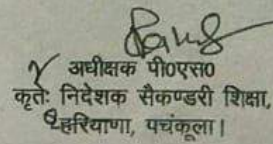 अधीक्षक पी०एस०
कृतेः निदेशक सैकण्डरी शिक्षा,
हरियाणा, पचंकूला।